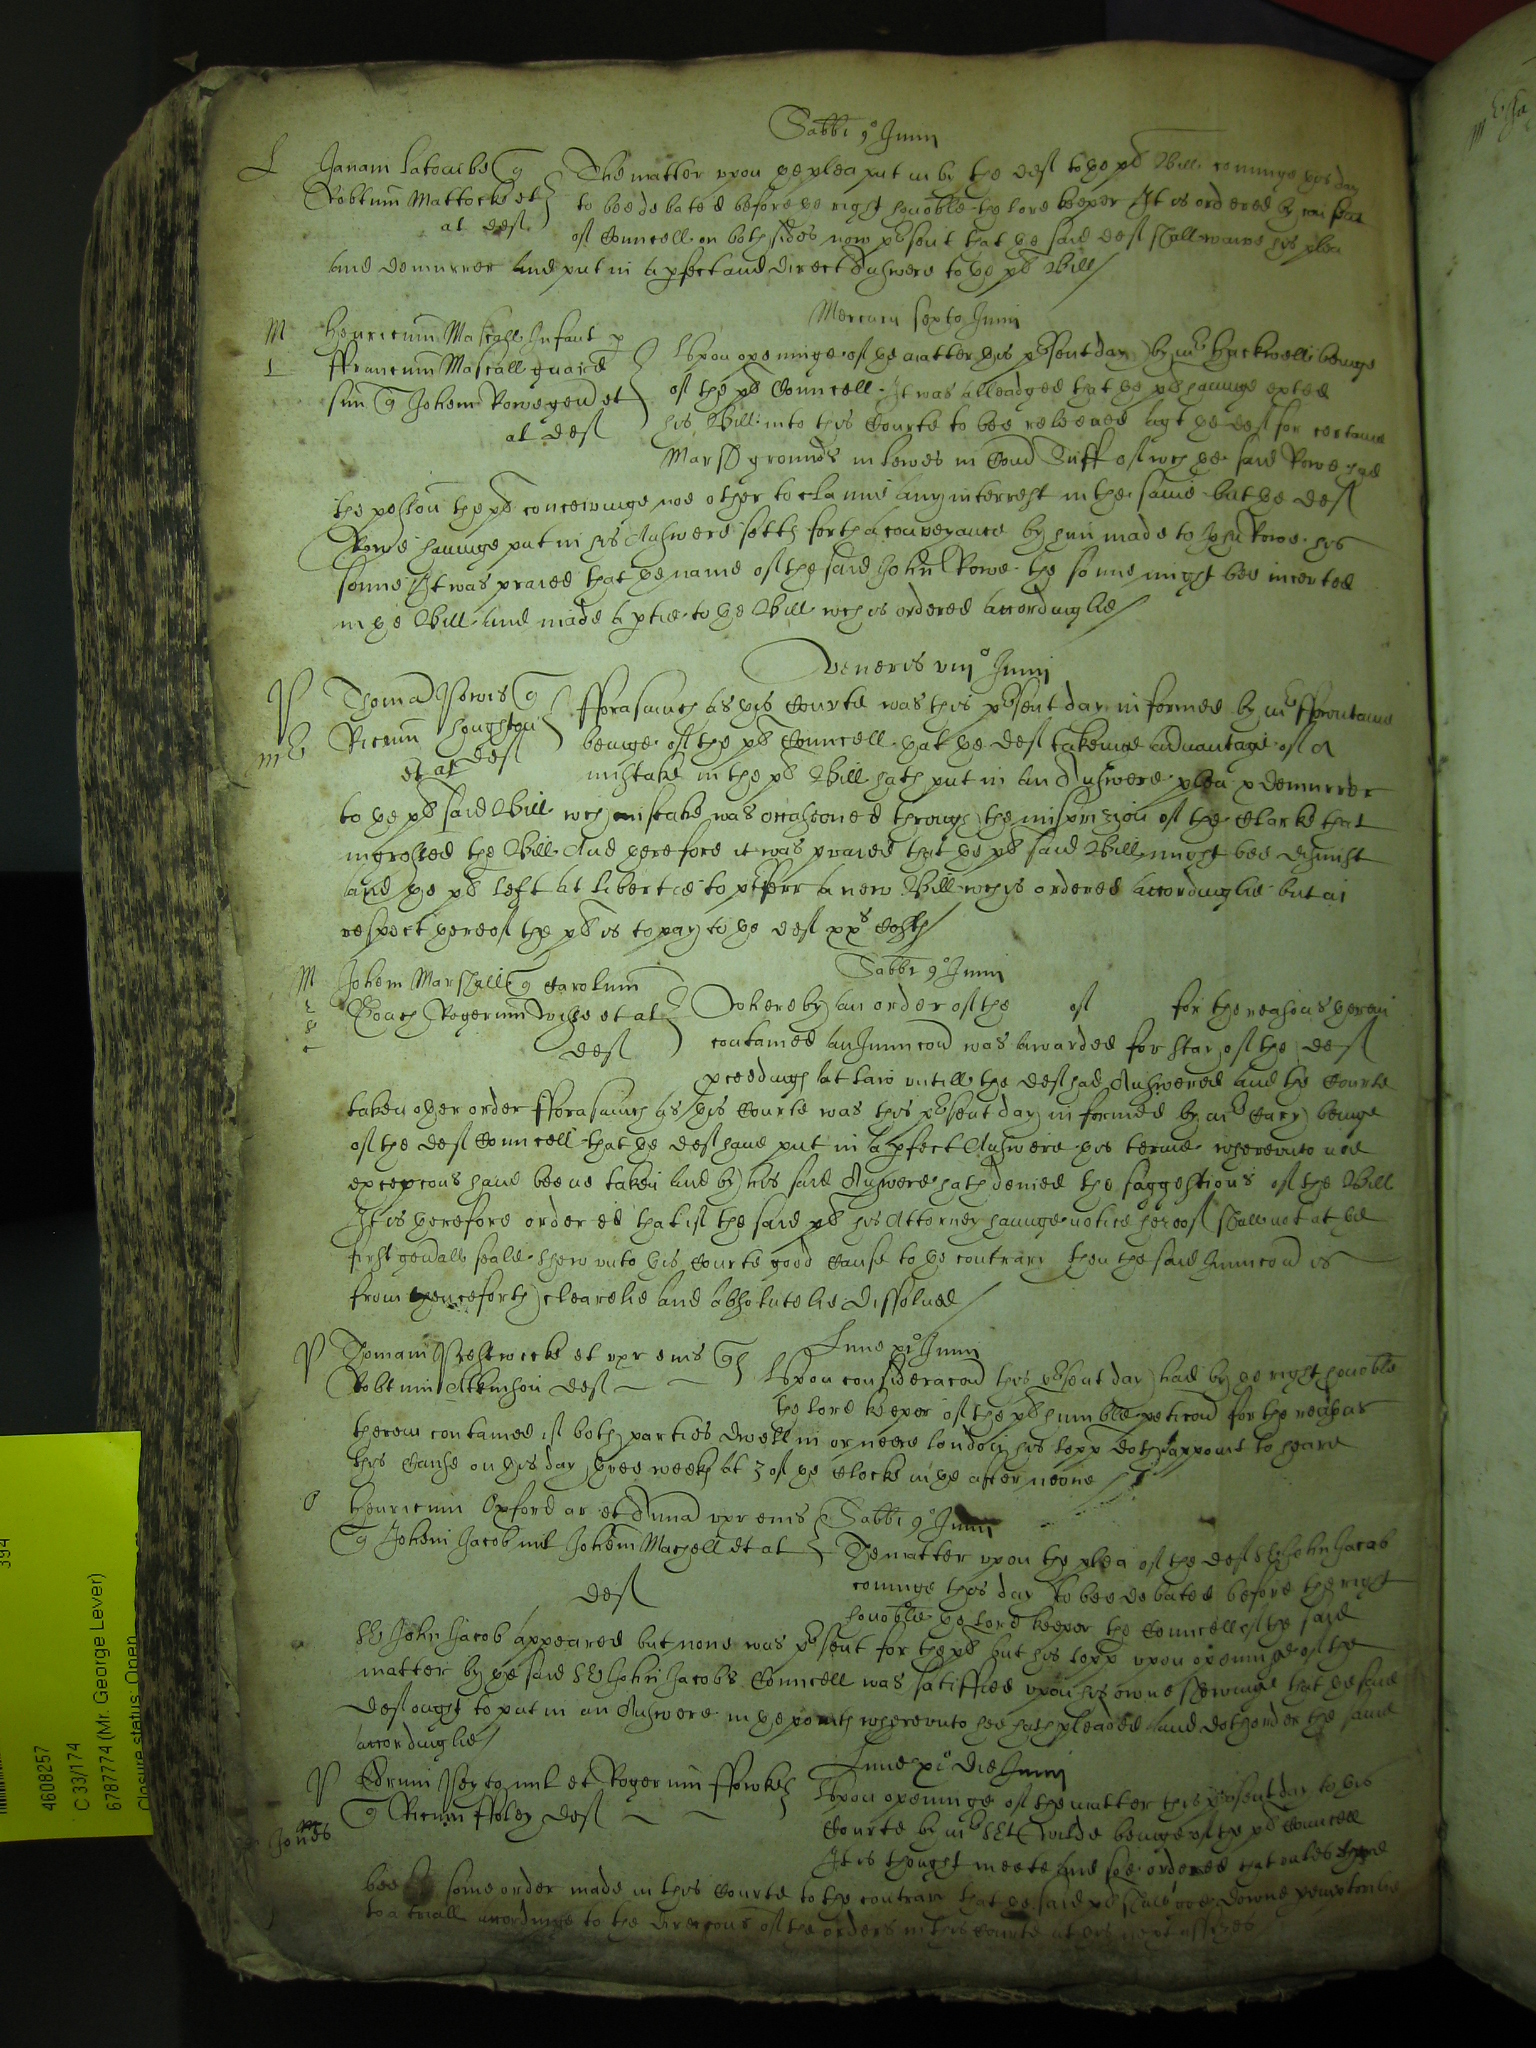 Sabbi 9° Junii
L Janam Latombe q
Robtum Mattocke et
al def
The matter vpon ye plea put in by the def to ye plt Bill cominge this day
to bee debated before ye right honoble the lord keeper It is ordered by
of Councell on both sides now pˢent that ye said def shall waive his plea
and demurrer and put in a pfect and direct Answere to ye plt Bill
Mercurii sexto Junii
M Henricum Mascall Infant p
L ffranciscum Mascall guard
suu q Johem Rowe gen et
al def
Vpon openinge of ye matter this pˢent day by mr Hackwell beinge
of the plt Councell It was alleadged that ye plt havinge exted
his Bill into this Courte to bee releived agt ye def for certaine
Marsh grounds in Lewes in Com Suff of wch ye said Rowe had
the possion the plt conceivinge noe other to claime any interrest in the same but ye def
Rowe havinge put in his Answere setth forth a conveyance by him made to John Rowe his
sonne It was praied that ye name of the said John Rowe the sonne might bee incerted
in ye Bill and made a ptie to ye Bill wch is ordered accordinglie
Veneris viii° Junii
P Thomam Powis q
mr Ricum Houghton
et al def
fforasmuch as this Courte was this pˢent day informed by mr ffountaine
beinge of the plt Councell that ye def takeinge advantage of a
mistake in the plt Bill hath put in an Answere plea & demurrer
to ye plt said Bill wch mistake was occasioned through the misprizion of the Clarke that
ingrossed the Bill And therefore it was praied that ye plt said Bill might bee dismist
and ye plt left at libertie to pˢferr a new Bill wch is ordered accordinglie but in
respect thereof the plt is to pay to ye def xxˢ Costs
Sabbi 9° Junii
M Johem Marshall q Carolum
Coach Rogerum et al
def
Whereby an order of the of for the reasons therein
contained an Iniuncon was awarded for stay of the def
pceedings at Law vntill the def had Answered and the Courte
taken other order fforasmuch as this Courte was this pˢent day informed by mr Cary beinge
of the def Councell that ye def have put in a pfect Answere this terme wherevnto noe
excepcons have beene taken and by his said Answere hath denied the suggestions of the Bill
It is therefore ordered that if the said plt his Attorney havinge notice hereof shall not at ye
first genall seale shew vnto this Courte good Cause to ye contrary then the said Iniuncon is
from thenceforth clearelie and absolutelie dissolved
Lune xi° Junii
P Thomam Prestwicke et vxr eius q
Robtum Atkinson def
Vpon consideracon this pˢent day had by ye right honoble
the lord keeper of the plt humble peticon for the reasons
therein contained if both parties dwell in or neere London his lopp doth appoint to heare
this Cause on this day three weeks at 3 of ye Clocke in ye after noone
O Henricum Oxford ar et Annam vxr eius
q Johem Jacob mil Johem Machell et al
def
Sabbi 9° Junii
The matter vpon the plea of the def Sr John Jacob
cominge this day to bee debated before the right
honoble ye Lord keeper the Councell of the said
Sr John Jacob appeared but none was pˢent for the plt but his lopp vpon openinge of the
matter by ye said Sr John Jacobs Councell was satisfied vpon his owne shewinge that ye said
def ought to put in an Answere in ye points wherevnto hee hath pleaded and doth order the same
accordinglie
Lune xi° die Junii
P Edrum Peyto mil et Rogerum ffowke
q Ricum ffoley def
Jones
Vpon openinge of the matter this pˢent day to this
Courte by mr Sert Wilde beinge of the plt Councell
It is thought meete and soe ordered that vnles there
bee some order made in this Courte to the contrary that ye said plt shall goe downe pemptorilie
to a triall accordinge to the direcons of the orders in this Courte at this next assizes
4608257
C 33/174
6787774 (Mr. George Lever)
Closure status: Open